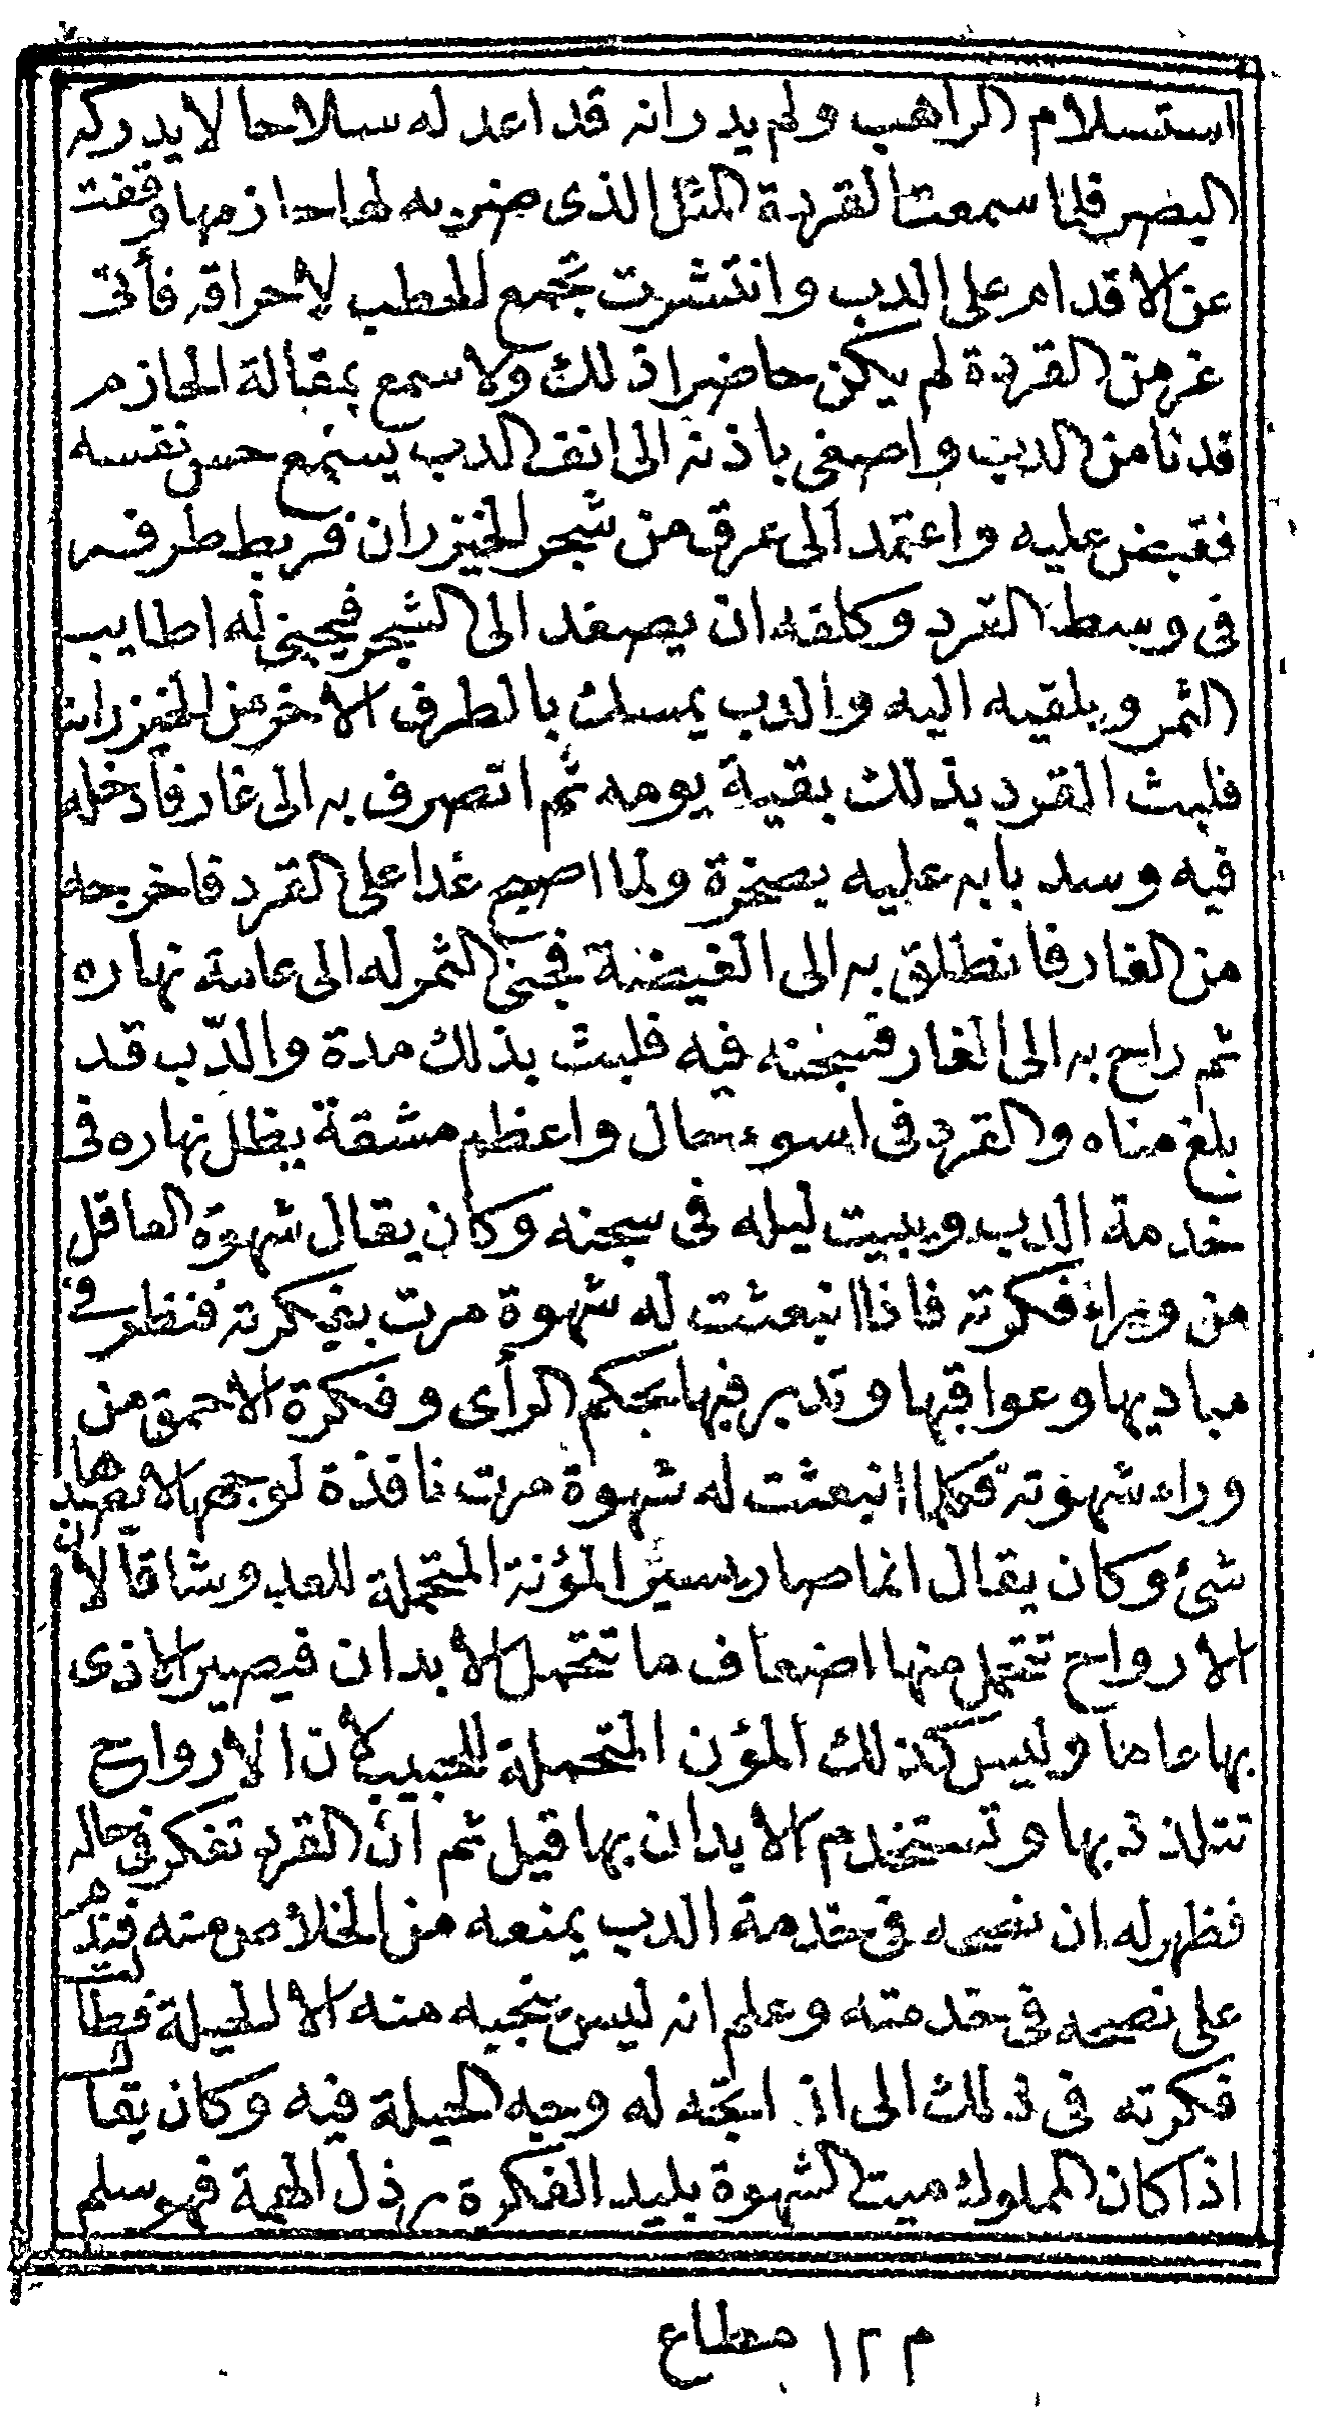 استسلام الراهب ولم يدر انه قد اعد له سلاحا لا يدركه
البصر فلما سمعت القردة المثل الذى ضربه لها حازمها وقفت
عن الاقدام على الدب وانتشرت تجمع الحطب لاحراقه فأتى
غر من القردة لم يكن حاضرا ذلك ولا سمع بمقالة الحازم
فدنا من الدب واصغى باذنه الى انف الدب يستمع حس نفسه
فقبض عليه واعتمد الى عرق من شجر الخيزران فربط طرفه
فى وسط القرد وكلفه ان يصعد الى الشجر فيجنى له اطايب
الثمر ويلقيه اليه والدب يمسك بالطرف الاخر من الخيزران
فلبث القرد بذلك بقية يومه ثم انصرف به الى غار فأدخله
فيه وسد بابه عليه بصخرة ولما اصبح غدا على القرد فاخرجه
من الغار فانطلق به الى الغيضة فجنى الثمر له الى عامة نهاره
ثم راح به الى الغار فسجنه فيه فلبث بذلك مدة والدّب قد
بلغ مناه والقرد فى اسوء حال واعظم مشقة يظل نهاره فى
خدمة الدب ويبيت ليله فى سجنه وكان يقال شهوة العاقل
من وراء فكرته فاذا انبعثت له شهوة مرت بفكرته فنظر فى
مباديها وعواقبها وتدبر فيها بحكم الرأى وفكرة الاحمق من
وراء شهوته فكلما انبعثت له شهوة مرت نافذة لوجهها لا يصدها
شئ وكان يقال انما صار يسير المؤنة المتحملة للعدو شاقا لان
الارواح تتحمل منها اضعاف ما تتحمل الابدان فيصير الاذى
بها عاما وليس كذلك المؤن المتحملة للحبيب لأن الارواح
تتلذذ بها وتستخدم الابدان بها قيل ثم ان القرد تفكر فى حاله
فظهر له ان نصحه فى خدمة الدب يمنعه من الخلاص منه فندم
على نصحه فى خدمته وعلم انه ليس ينجيه منه الا الحيلة فطالت
فكرته فى ذلك الى ان اتجه له وجه الحيلة فيه وكان يقال
اذا كان المملوك ميت الشهوة بليد الفكرة رذل الهمة فهو سلم
م ١٢ مطاع